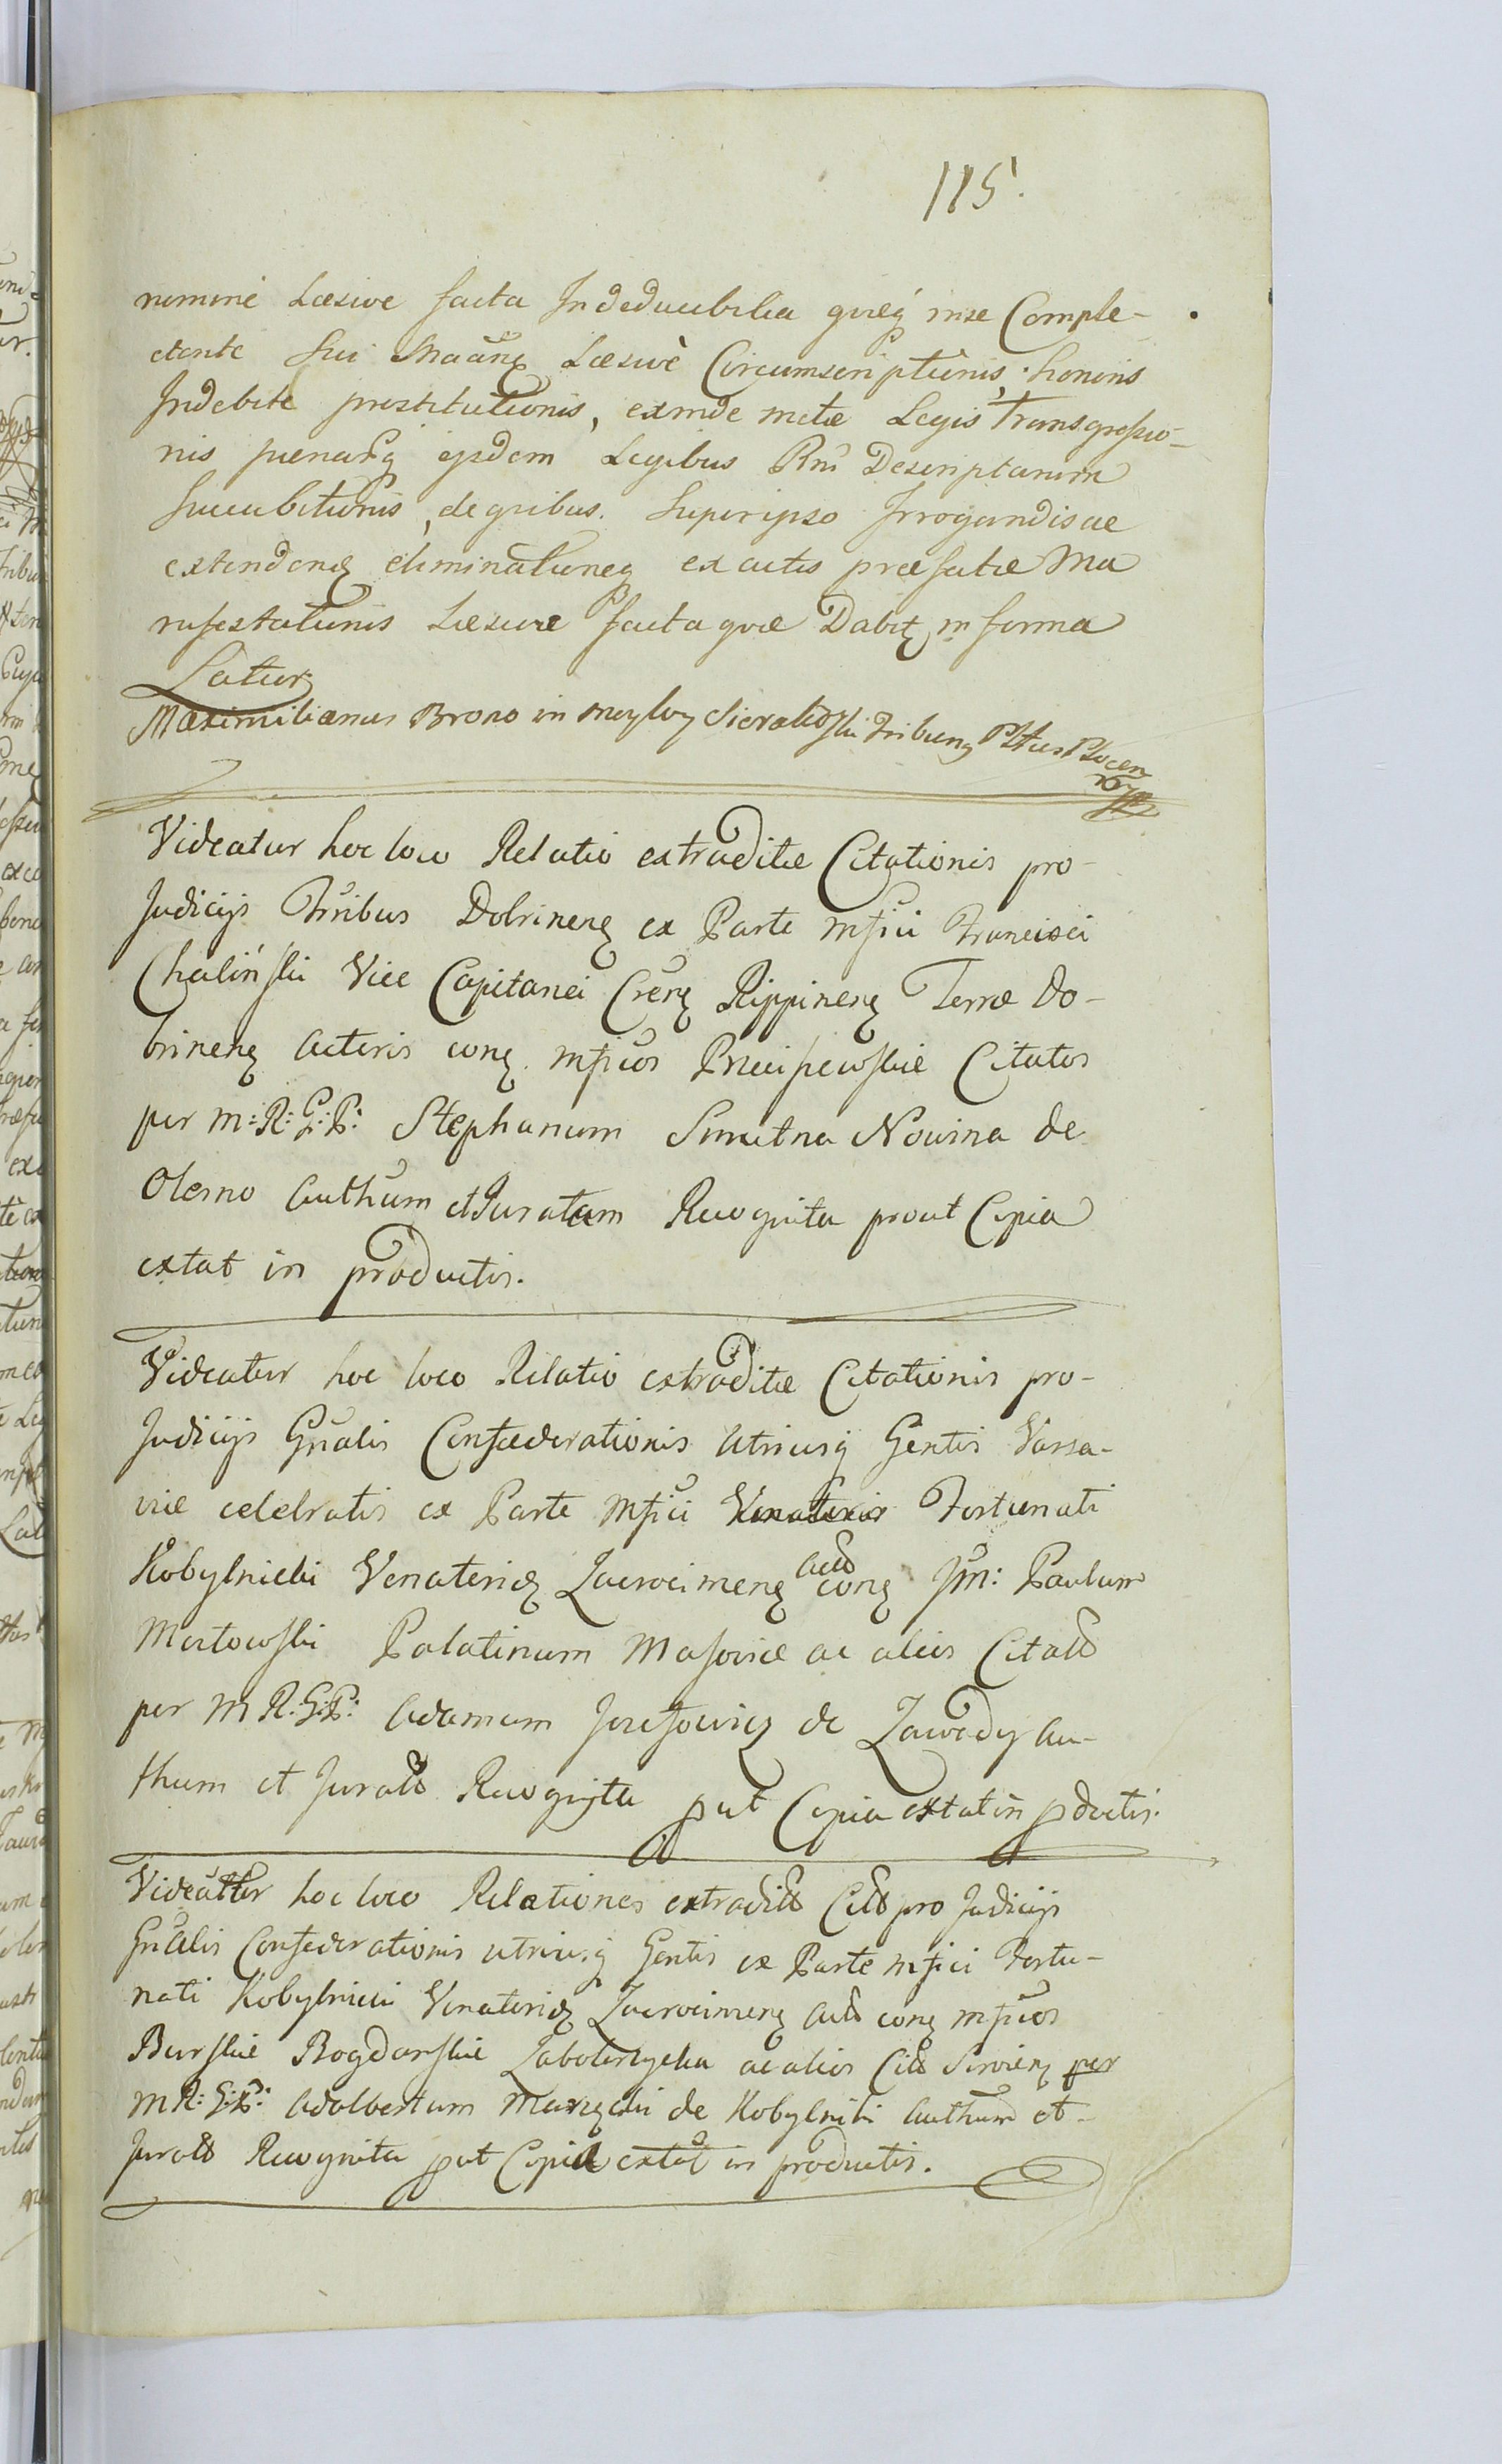 115.
nomine Læsive facta Indeducibilia quæq inse Comple-
ctente sui Læsivè Circumscriptionis, honoris
Indebite prostitutionis, exinde metæ Legis Transgressio-
nis pænarq ejsdem Legibus Rni Descriptarum
succubitionis, de quibus superipso Irrogandis ac
extendenę eliminationeq ex actis præfatæ Ma
nifestationis Læsivæ facta quæ Dabitʒ in forma
Latior
Maximilianus Brono in Sieratoski Tribunʒ Pltus Plocen
Videatur hoc loco Relatio extraditæ Citationis pro-
Judicijs Tribus Dobrinenʒ ex Parte Mfici Francisci
Chaliński Vice Capitanei Crenʒ Rippinenʒ Terræ Do-
brinenʒ Actoris conʒ Mficos Przeciszewskie Citatos
per M: R: G: P: Stephanum Smutna Nowina de
Olesno Authum et Juratum Recognita prout Copia
extat in productis.
Videatur hoc loco Relatio extraditæ Citationis pro-
Judicijs Gnalis Confæderationis Utriusq Gentis Varsa-
viæ celebratis ex Parte Mfici Fortunati
Kobylnicki Venatoridʒ Zacrocimenʒ Acto conʒ Jm: Paulum
Mostowski Palatinum Masoviæ ac alios Citatt
per M R: G: P: Adamum Jozefowicz de Zawady Au-
thum et Juratt Recognita put Copia extat in pductis.
Videatur hoc loco Relationes extradit Citt pro Judicijs
Gnalis Confederationis utriusq Gentis ex Parte Mfici Fortu-
nati Kobylnicki Venatoridʒ Zacrocimenʒ Act conʒ Mficos
Burskie Bogdanskie ac alios Citt Servienʒ per
M R: G: P: Adalbertum de Kobylniki Authum et
Juratt Recognita put Copia extat in productis.